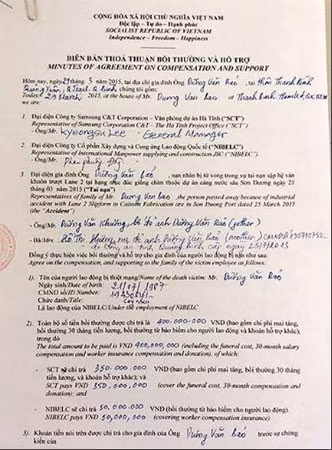 CỘNG HÒA XÃ HỘI CHỦ NGHĨA VIỆT NAM
Độc lập – Tự do – Hạnh phúc
SOCIALIST REPUBLIC OF VIETNAM
Independence – Freedom – Happiness
BIÊN BẢN THOẢ THUẬN BỒI THƯỜNG VÀ HỖ TRỢ
MINUTES OF AGREEMENT ON COMPENSATION AND SUPPORT
Hôm nay, ngày 29 tháng 3 năm 2015, tại địa chỉ gia đình Ông Dường Văn Bảo, tại thôn Thanh Bình
chúng tôi gồm:
Today, 29 March 2015, at the house of Mr. Duong Van Bao at Thanh Binh
1. Đại diện Công ty Samsung C&T Corporation – Văn phòng dự án Hà Tĩnh ("SCT")
Representative of Samsung Corporation C&T – The Ha Tinh Project Office ("SCT")
- Ông/Mr. Kyeongsu Lee - General Manager
2. Đại diện Công ty Cổ phần Xây dựng và Cung ứng Lao động Quốc tế ("NIBELC")
Representative of International Manpower supplying and construction JSC ("NIBELC")
- Ông/Mr.
3. Đại diện gia đình ông Dường Văn Bảo, nạn nhân bị tử vong trong vụ tai nạn sập hệ ván
khuôn trượt Lane 2 tại hạng mục đúc giếng chìm thuộc dự án cảng nước sâu Sơn Dương ngày 25
tháng 03 năm 2015 ("Tai nạn")
Representatives of family of Mr. Duong Van Bao, the person passed away because of industrial
accident with Lane 2 Slipform in Caisson Fabrication are in Son Duong Port dated 25 March 2015
(the "Accident")
- Ông/Mr. Dường Văn Khường, bố đẻ anh Dường Văn Bảo (father)
- Bà/Mrs. Hồ Thị Phương, mẹ đẻ anh Dường Văn Bảo (mother)
Đồng ý thực hiện việc bồi thường và hỗ trợ cho gia đình của người lao động bị nạn như sau:
Agree on the compensation, and supporting to the family of the victim employee as follows:
1). Tên của người lao động bị thiệt mạng/Name of the death victim: Mr. Dường Văn Bảo
Ngày sinh/Date of birth: 21/07/1987
CMND số/ID Number:
Chức danh/Title:
Là lao động của NIBELC/Under the employment of NIBELC
2). Toàn bộ số tiền bồi thường được chi trả là 400.000.000 VNĐ (bao gồm chi phí mai táng,
bồi thường 30 tháng tiền lương, bồi thường từ bảo hiểm cho người lao động và khoản hỗ trợ khác),
trong đó:
The total amount to be paid is VND 400,000,000 (including the funeral cost, 30-month salary
compensation and worker insurance compensation and donation), of which:
- SCT sẽ chi trả 350.000.000 VNĐ (bao gồm chi phí mai táng, bồi thường 30 tháng
tiền lương, và khoản hỗ trợ khác); và
SCT pays VND 350,000,000 (cover the funeral cost, 30-month compensation and
donation); and
- NIBELC sẽ chi trả 50.000.000 VNĐ (bồi thường từ bảo hiểm cho người lao động).
NIBELC pays VND 50,000,000 (covering worker insurance compensation)
3). Khoản tiền nói trên được chi trả cho gia đình của Ông Dường Văn Bảo trước sự chứng
kiến của